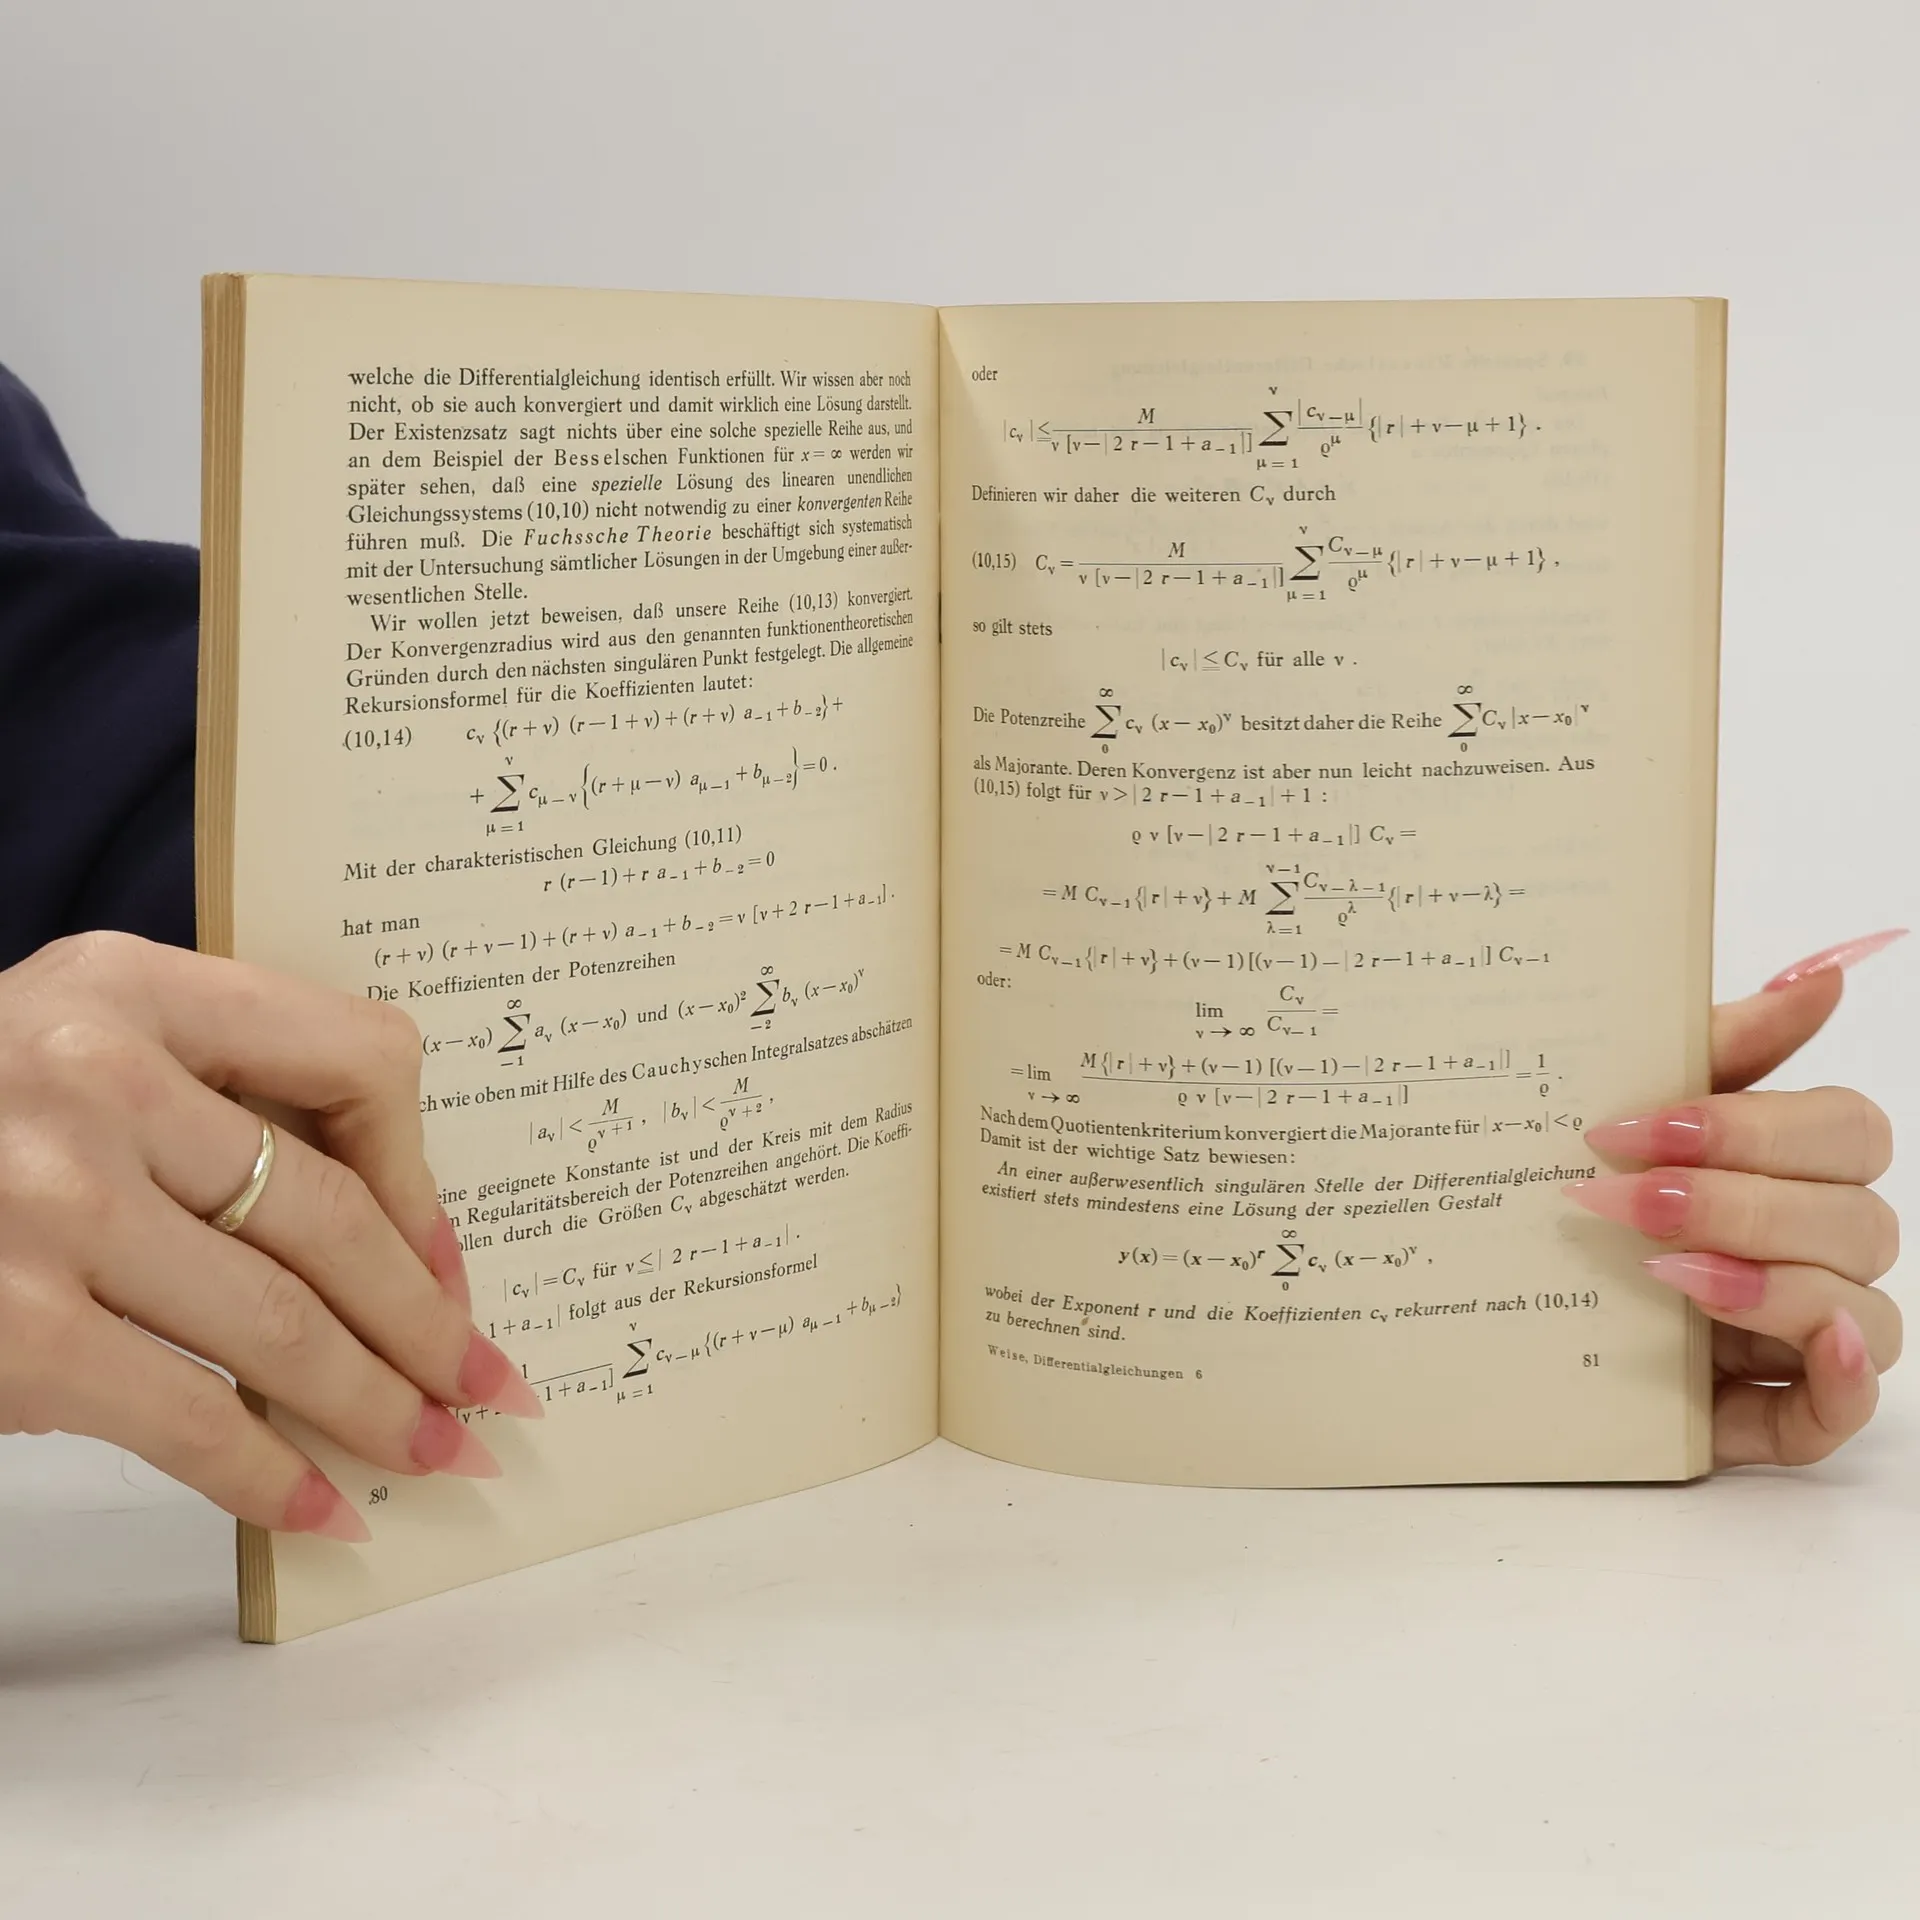 welche die Differentialgleichung identisch erfüllt. Wir wissen aber noch
nicht, ob sie auch konvergiert und damit wirklich eine Lösung darstellt.
Der Existenzsatz sagt nichts über eine solche spezielle Reihe aus, und
an dem Beispiel der Besselschen Funktionen für x = ∞ werden wir
später sehen, daß eine spezielle Lösung des linearen unendlichen
Gleichungssystems (10,10) nicht notwendig zu einer konvergenten Reihe
führen muß. Die Fuchssche Theorie beschäftigt sich systematisch
mit der Untersuchung sämtlicher Lösungen in der Umgebung einer außer-
wesentlichen Stelle.
Wir wollen jetzt beweisen, daß unsere Reihe (10,13) konvergiert.
Der Konvergenzradius wird aus den genannten funktionentheoretischen
Gründen durch den nächsten singulären Punkt festgelegt. Die allgemeine
Rekursionsformel für die Koeffizienten lautet:
(10,14) c_ν {(r+ν) (r−1+ν)+(r+ν) a_{−1}+b_{−2}}+
+ ∑_{μ=1}^{ν} c_{μ−ν} {(r+μ−ν) a_{μ−1}+b_{μ−2}}=0.
Mit der charakteristischen Gleichung (10,11)
r (r−1)+r a_{−1}+b_{−2}=0
hat man
(r+ν) (r+ν−1)+(r+ν) a_{−1}+b_{−2}=ν [ν+2 r−1+a_{−1}].
Die Koeffizienten der Potenzreihen
(x−x₀) ∑_{−1}^{∞} a_ν (x−x₀) und (x−x₀)² ∑_{−2}^{∞} b_ν (x−x₀)^ν
wie oben mit Hilfe des Cauchyschen Integralsatzes abschätzen
|a_ν| < M/ϱ^{ν+1}, |b_ν| < M/ϱ^{ν+2},
eine geeignete Konstante ist und der Kreis mit dem Radius
Regularitätsbereich der Potenzreihen angehört. Die Koeffi-
durch die Größen C_ν abgeschätzt werden.
|c_ν|=C_ν für ν≦| 2 r−1+a_{−1}|.
1+a_{−1}| folgt aus der Rekursionsformel
1/[ν+ 1+a_{−1}] ∑_{μ=1}^{ν} c_{ν−μ} {(r+ν−μ) a_{μ−1}+b_{μ−2}}
80
oder
|c_ν| ≦ M/(ν [ν−|2 r−1+a_{−1}|]) ∑_{μ=1}^{ν} |c_{ν−μ}|/ϱ^μ {|r|+ν−μ+1}.
Definieren wir daher die weiteren C_ν durch
(10,15) C_ν= M/(ν [ν−|2 r−1+a_{−1}|]) ∑_{μ=1}^{ν} C_{ν−μ}/ϱ^μ {|r|+ν−μ+1},
so gilt stets
|c_ν|≦C_ν für alle ν.
Die Potenzreihe ∑_{0}^{∞} c_ν (x−x₀)^ν besitzt daher die Reihe ∑_{0}^{∞} C_ν |x−x₀|^ν
als Majorante. Deren Konvergenz ist aber nun leicht nachzuweisen. Aus
(10,15) folgt für ν>|2 r−1+a_{−1}|+1 :
ϱ ν [ν−|2 r−1+a_{−1}|] C_ν=
=M C_{ν−1}{|r|+ν}+M ∑_{λ=1}^{ν−1} C_{ν−λ−1}/ϱ^λ {|r|+ν−λ}=
=M C_{ν−1}{|r|+ν}+(ν−1)[(ν−1)−|2 r−1+a_{−1}|] C_{ν−1}
oder:
lim_{ν→∞} C_ν/C_{ν−1}=
=lim_{ν→∞} (M{|r|+ν}+(ν−1) [(ν−1)−|2 r−1+a_{−1}|])/(ϱ ν [ν−|2 r−1+a_{−1}|])=1/ϱ.
Nach dem Quotientenkriterium konvergiert die Majorante für |x−x₀|<ϱ
Damit ist der wichtige Satz bewiesen:
An einer außerwesentlich singulären Stelle der Differentialgleichung
existiert stets mindestens eine Lösung der speziellen Gestalt
y(x)=(x−x₀)^r ∑_{0}^{∞} c_ν (x−x₀)^ν,
wobei der Exponent r und die Koeffizienten c_ν rekurrent nach (10,14)
zu berechnen sind.
Weise, Differentialgleichungen 6
81